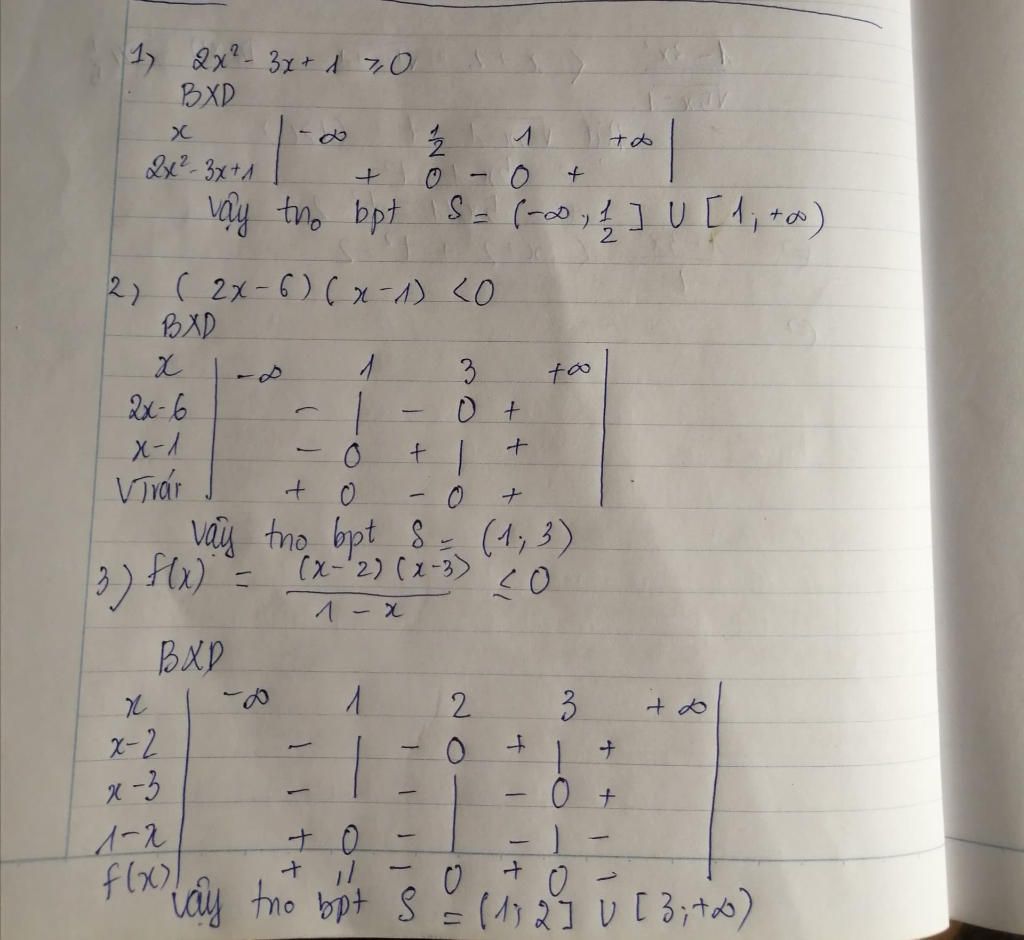 1) 2x² - 3x + 1 ≥ 0
BXD
x | -∞ 1/2 1 +∞ |
2x² - 3x + 1 | + 0 - 0 + |
Vậy tno bpt S = (-∞; 1/2] ∪ [1; +∞)
2) (2x-6)(x-1) < 0
BXD
x | -∞ 1 3 +∞ |
2x-6 | - | - 0 + |
x-1 | - 0 + | + |
VTrái | + 0 - 0 + |
Vậy tno bpt S = (1; 3)
3) f(x) = (x-2)(x-3) / 1-x ≤ 0
BXD
x | -∞ 1 2 3 +∞ |
x-2 | - | - 0 + | + |
x-3 | - | - | - 0 + |
1-x | + 0 - | - | - |
f(x) | + || - 0 + 0 - |
Vậy tno bpt S = (1; 2] ∪ [3; +∞)